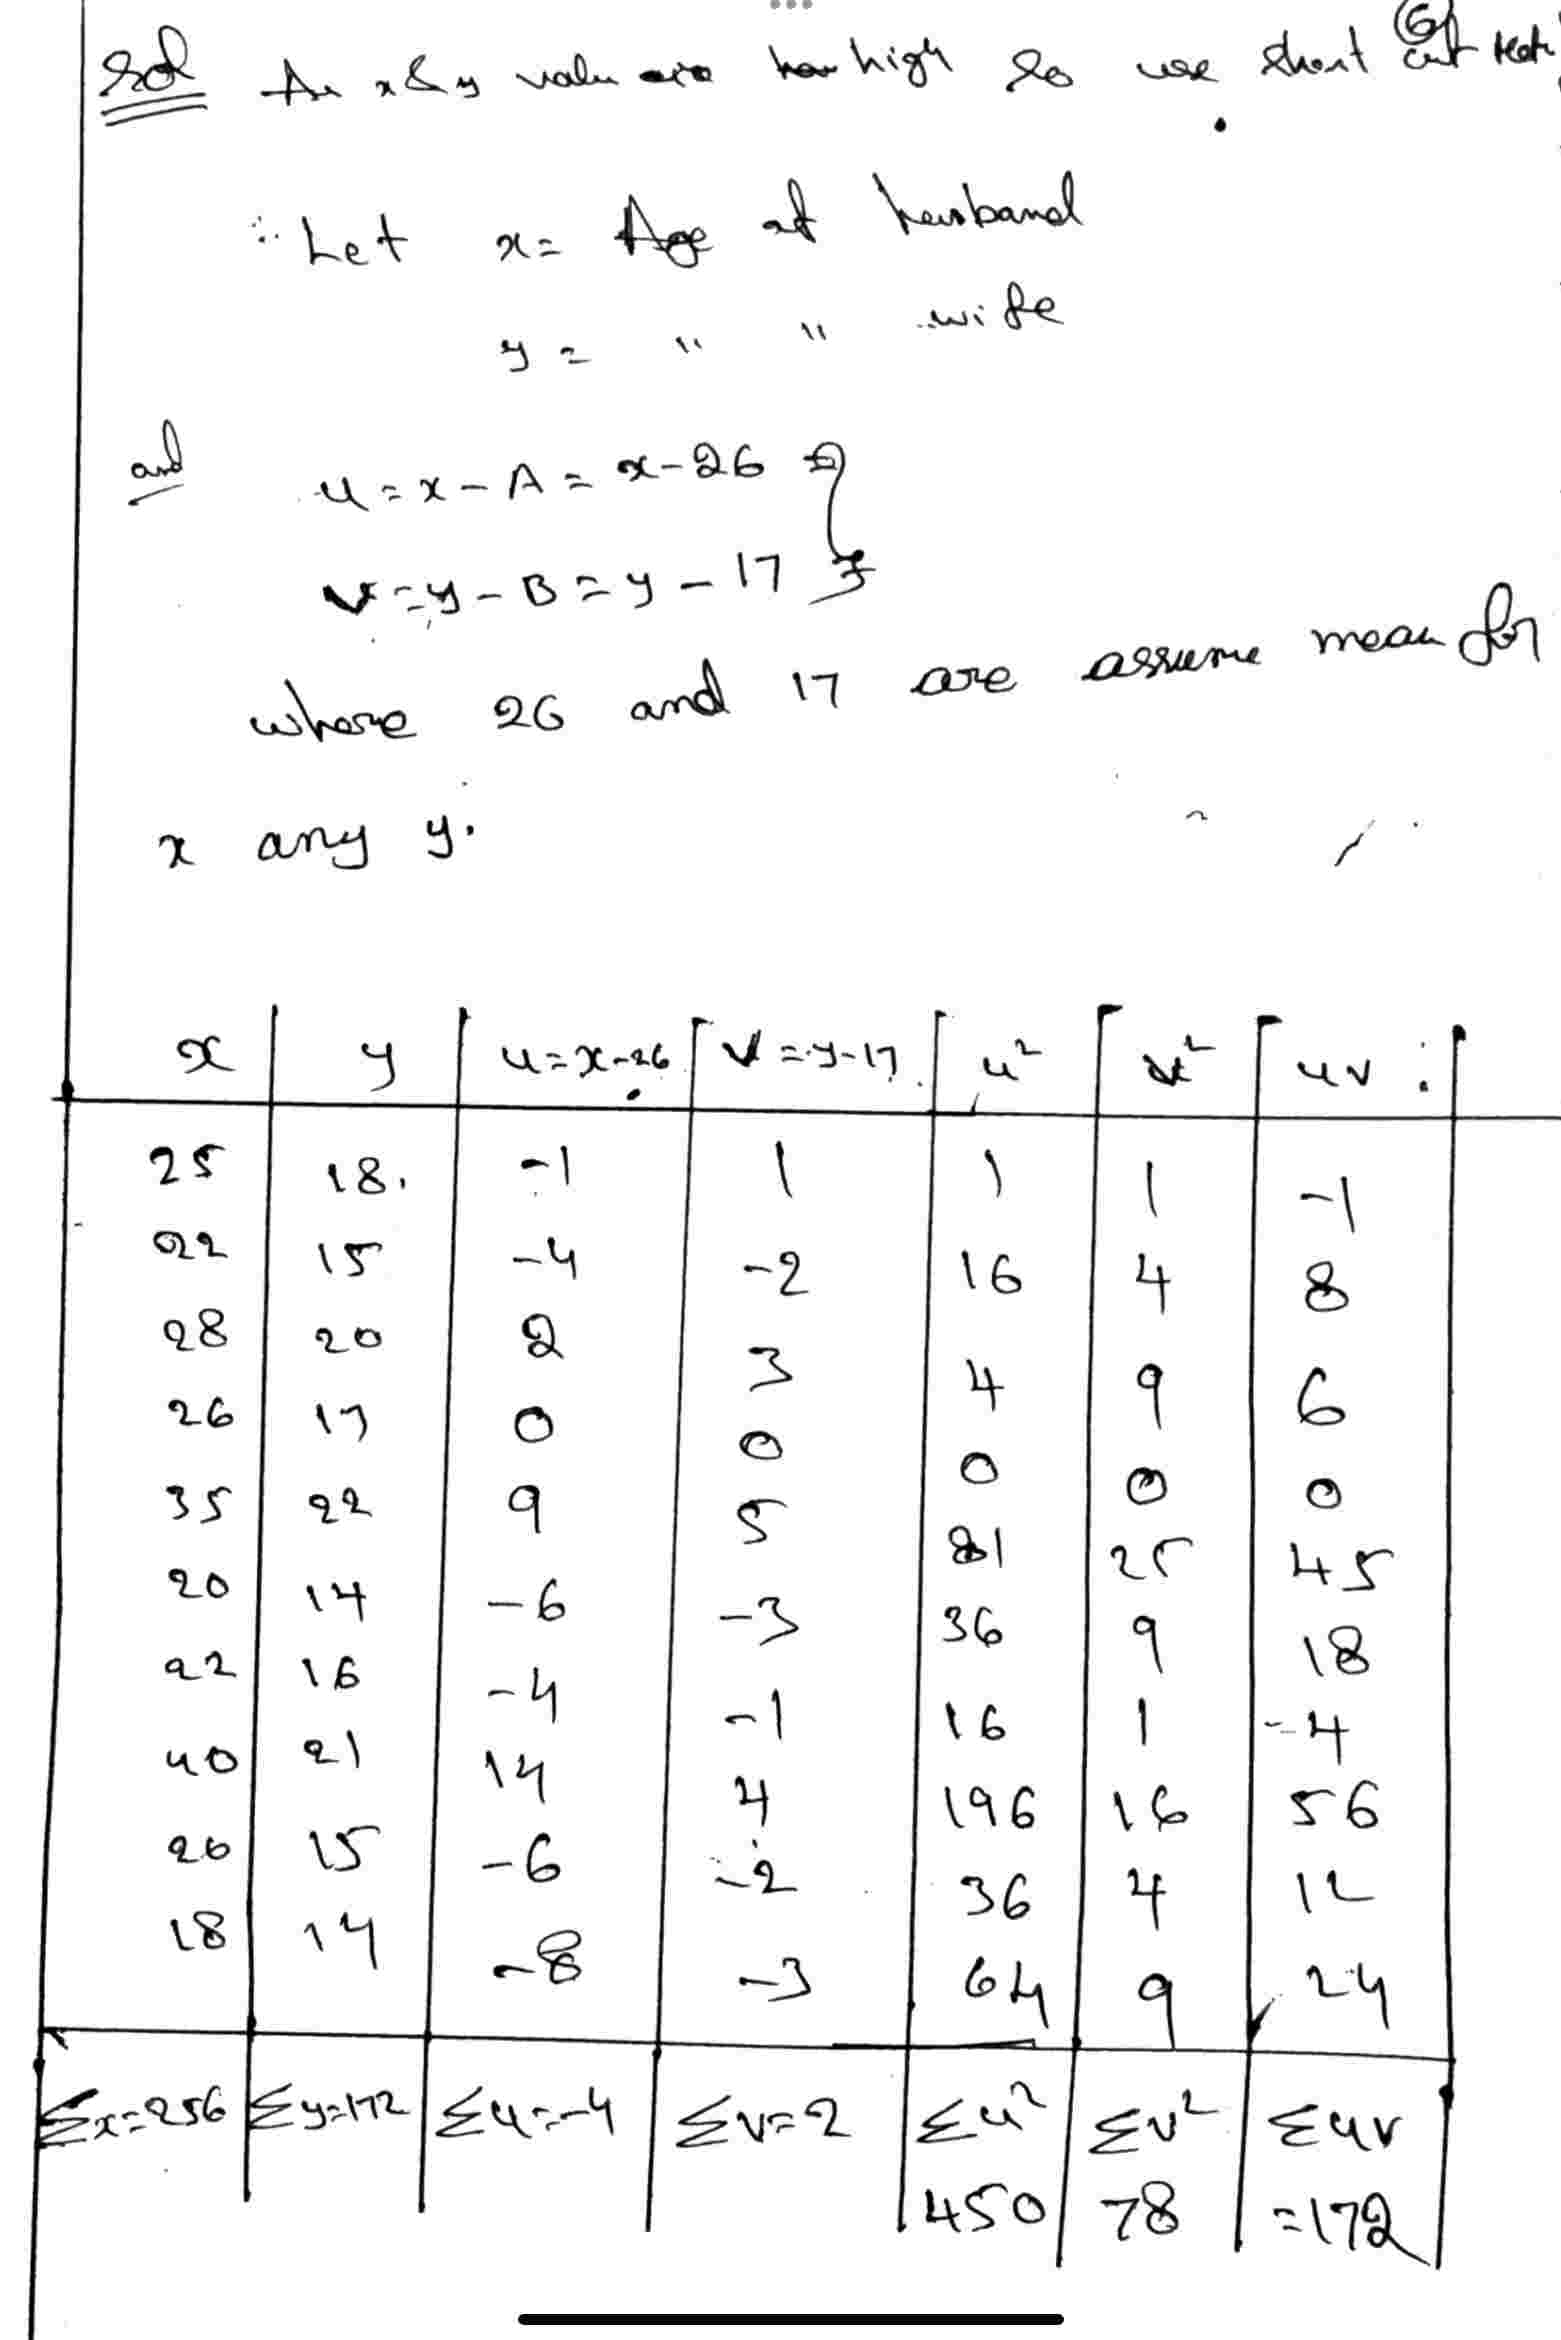 Sol As x & y value are high So use short cut
6
∴ Let x = Age of husband
y = " " wife
and u = x - A = x - 26
v = y - B = y - 17
where 26 and 17 are assume mean for
x any y.
x y u = x-26 v = y-17 u² v² uv
25 18 -1 1 1 1 -1
22 15 -4 -2 16 4 8
28 20 2 3 4 9 6
26 17 0 0 0 0 0
35 22 9 5 81 25 45
20 14 -6 -3 36 9 18
22 16 -4 -1 16 1 -4
40 21 14 4 196 16 56
20 15 -6 -2 36 4 12
18 14 -8 -3 64 9 24
Σx=256 Σy=172 Σu=-4 Σv=2 Σu² Σv² Σuv
450 78 =172